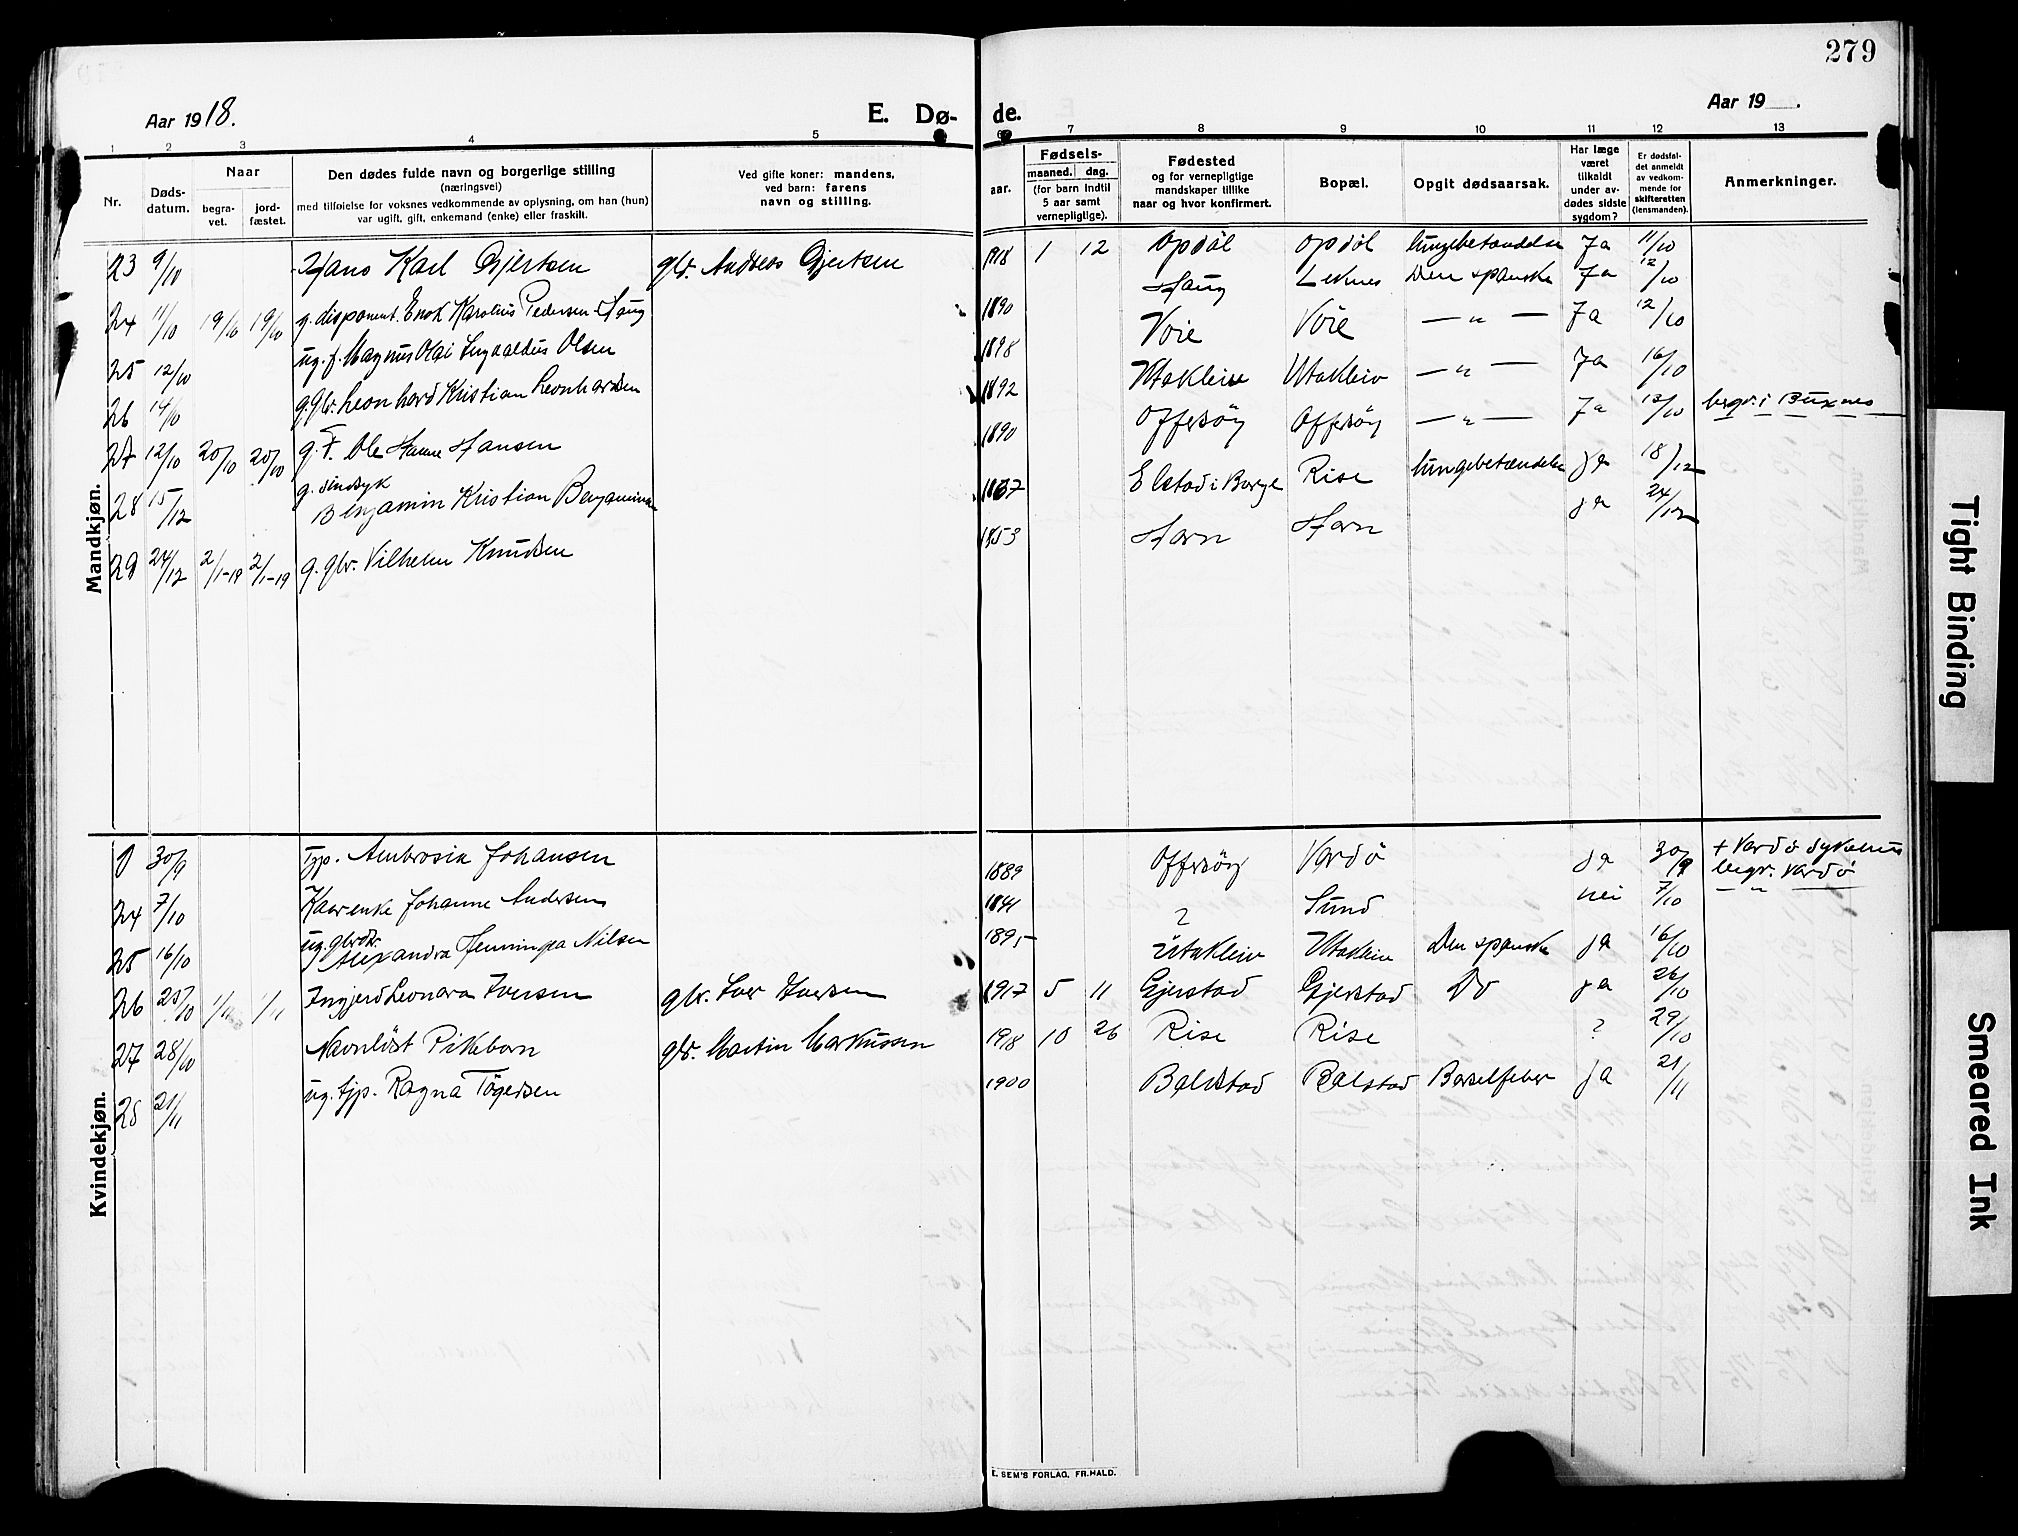 279
Aar 1918.
E. Dø-
de.
Aar 19 .
1 2 3 4 5 6 7 8 9 10 11 12 13
Nr.
Døds-
datum.
Naar
begra-
vet.
jord-
fæstet.
Den dødes fulde navn og borgerlige stilling
(næringsvei)
med tilføielse for voksnes vedkommende av oplysning, om han (hun)
var ugift, gift, enkemand (enke) eller fraskilt.
Ved gifte koner: mandens,
ved barn: farens
navn og stilling.
aar.
Fødsels-
maaned. dag.
(for barn indtil
5 aar samt
vernepligtige).
Fødested
og for vernepligtige
mandskaper tillike
naar og hvor konfirmert.
Bopæl.
Opgit dødsaarsak.
Har læge
været
tilkaldt
under av-
dødes sidste
sygdom?
Er dødsfal-
det anmeldt
av vedkom-
mende for
skifteretten
(lensmanden).
Anmerkninger.
Mandkjøn.
23 9/10 Hans Karl Gjertsen gbr. Andreas Gjertsen 1918 1 12 Opdöl Opdöl lungebetændelse Ja 11/10
24 11/10 19/10 19/10 g. disponent. Enok Karolius Pedersen Haug 1890 Haug Leknes Den spanske Ja 12/10
25 12/10 ug. f. Magnus Olai Ingvaldus Olsen 1898 Voie Voie — " — Ja 12/10
26 14/10 g. gbr. Leonhard Kristian Leonhardsen 1892 Utakleiv Utakleiv — " — Ja 16/10
27 12/10 20/10 20/10 g. F. Ole Hansen 1890 Offersöy Offersöy — " — Ja 13/10 begr. i Buxnes
28 15/12 g. sindsyk
Benjamin Kristian Benjaminsen 1867 Elstad i Borge Rise lungebetændelse ja 18/12
29 24/12 2/1-19 2/1-19 g. gbr. Vilhelm Knudsen 1853 Horn Horn ja 24/12
Kvindekjøn.
30/9 Tjp. Ambrosia Johansen 1889 Offersöy Vardö ja 30/9 + Vardö sykehus
begr. Vardö
24 7/10 Johanne Andersen 1841 ? Sund nei 7/10 — " —
25 16/10 ug. gbrdtr.
Alexandra Nilsen 1895 Utakleiv Utakleiv Den spanske ja 16/10
26 25/10 1/11 1/11 Ingjerd Leonora Iversen gbr. Iver Iversen 1917 5 11 Gjerstad Gjerstad Do ja 26/10
27 28/10 Navnlöst Pikebarn gbr. Martin Markussen 1918 10 26 Rise Rise ? 29/10
28 21/11 ug. tjp. Ragna Tögersen 1900 Balstad Balstad Barselfeber ja 21/11
E. SEM'S FORLAG, FR.HALD.
Tight Binding
Smeared Ink